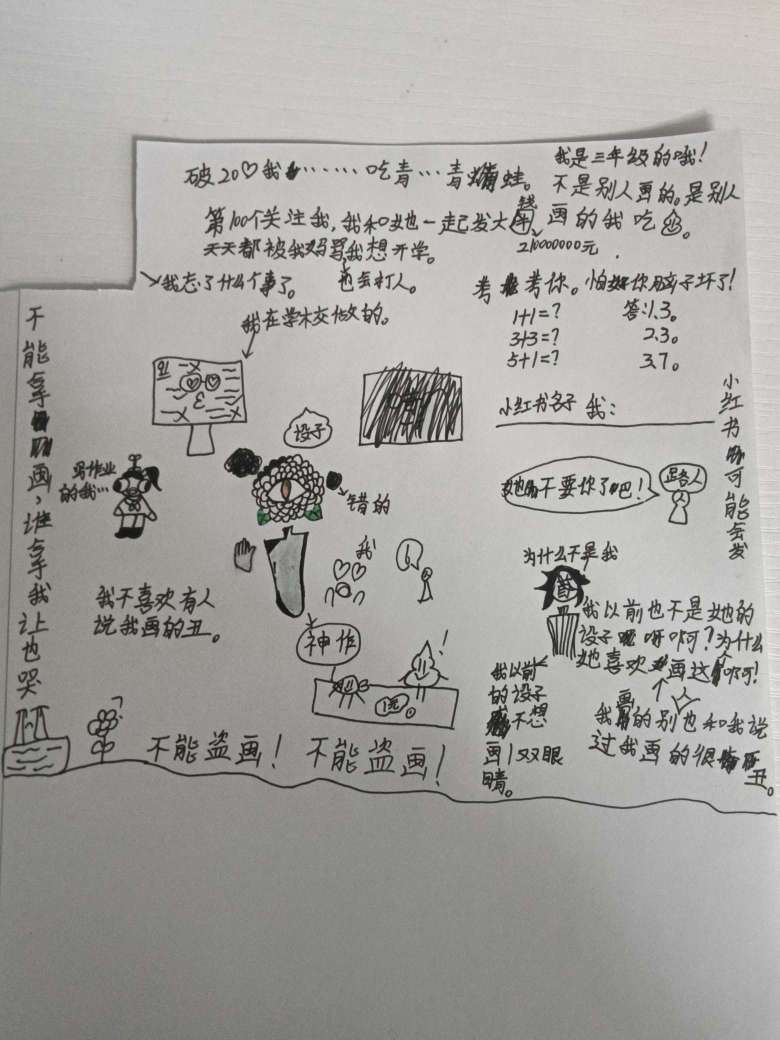 破20♡我……吃青…青蛙。
第100个关注我,我和她一起发大钱
210000000元
天天都被我妈骂我想开学。
也会打人。
我忘了什么事了。
我是三年级的哦!
不是别人画的。是别人
画的我吃
考考你。怕你脑子坏了!
1+1=? 答:1.3。
3+3=? 2.3。
5+1=? 3.7。
我在学校做的。
小红书名子 我:
小红书可能会发
不能拿画,谁拿我让也哭
设子
写作业
的我…
错的
我
她不要你了吧!
路人
为什么不是我
我不喜欢有人
说我画的丑。
神作
1元。
我以前也不是她的
设子呀啊?为什么
她喜欢画这个啊!
我以前
的设子
不想
画1双眼
睛。
我画的别也和我说
过我画的很丑。
不能盗画! 不能盗画!